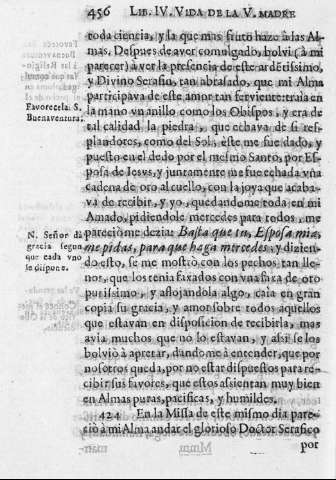 456 LIB. IV. VIDA DE LA V. MADRE
toda ciencia, y la que mas fruto haze à las Al-
mas. Despues de aver comulgado, bolvi (à mi
parecer) à vèr la presencia de este ardẽtissimo,
y Divino Serafin, tan abrasado, que mi Alma
participava de este amor tan ferviente: traìa en
Favorecela S.
Buenaventura.
la mano vn anillo como los Obispos, y era de
tal calidad la piedra, que echava de sì res-
plandores, como del Sol, este me fue dado, y
puesto en el dedo por el mesmo Santo, por Es-
posa de Jesus, y juntamente me fue echada vna
cadena de oro al cuello, con la joya que acaba-
va de recibir, y yo, quedandome toda en mi
Amado, pidiendole mercedes para todos, me
pareciò me dezia: Basta que tu, Esposa mia,
N. Señor dà
gracia segun
que cada vno
se dispone.
me pidas, para que haga mercedes: y dizien-
do esto, se me mostrò con los pechos tan lle-
nos, que los tenia faxados con vna faxa de oro
purissimo, y afloxandola algo, caìa en gran
copia su gracia, y amor sobre todos aquellos
que estavan en disposicion de recibirla, mas
avia muchos que no lo estavan, y assi se los
bolviò à apretar, dandome à entender, que por
nosotros queda, por no estar dispuestos para re-
cibir sus favores, que estos assientan muy bien
en Almas puras, pacificas, y humildes.
424 En la Missa de este mismo dia pare-
ciò à mi Alma andar el glorioso Doctor Serafico
por